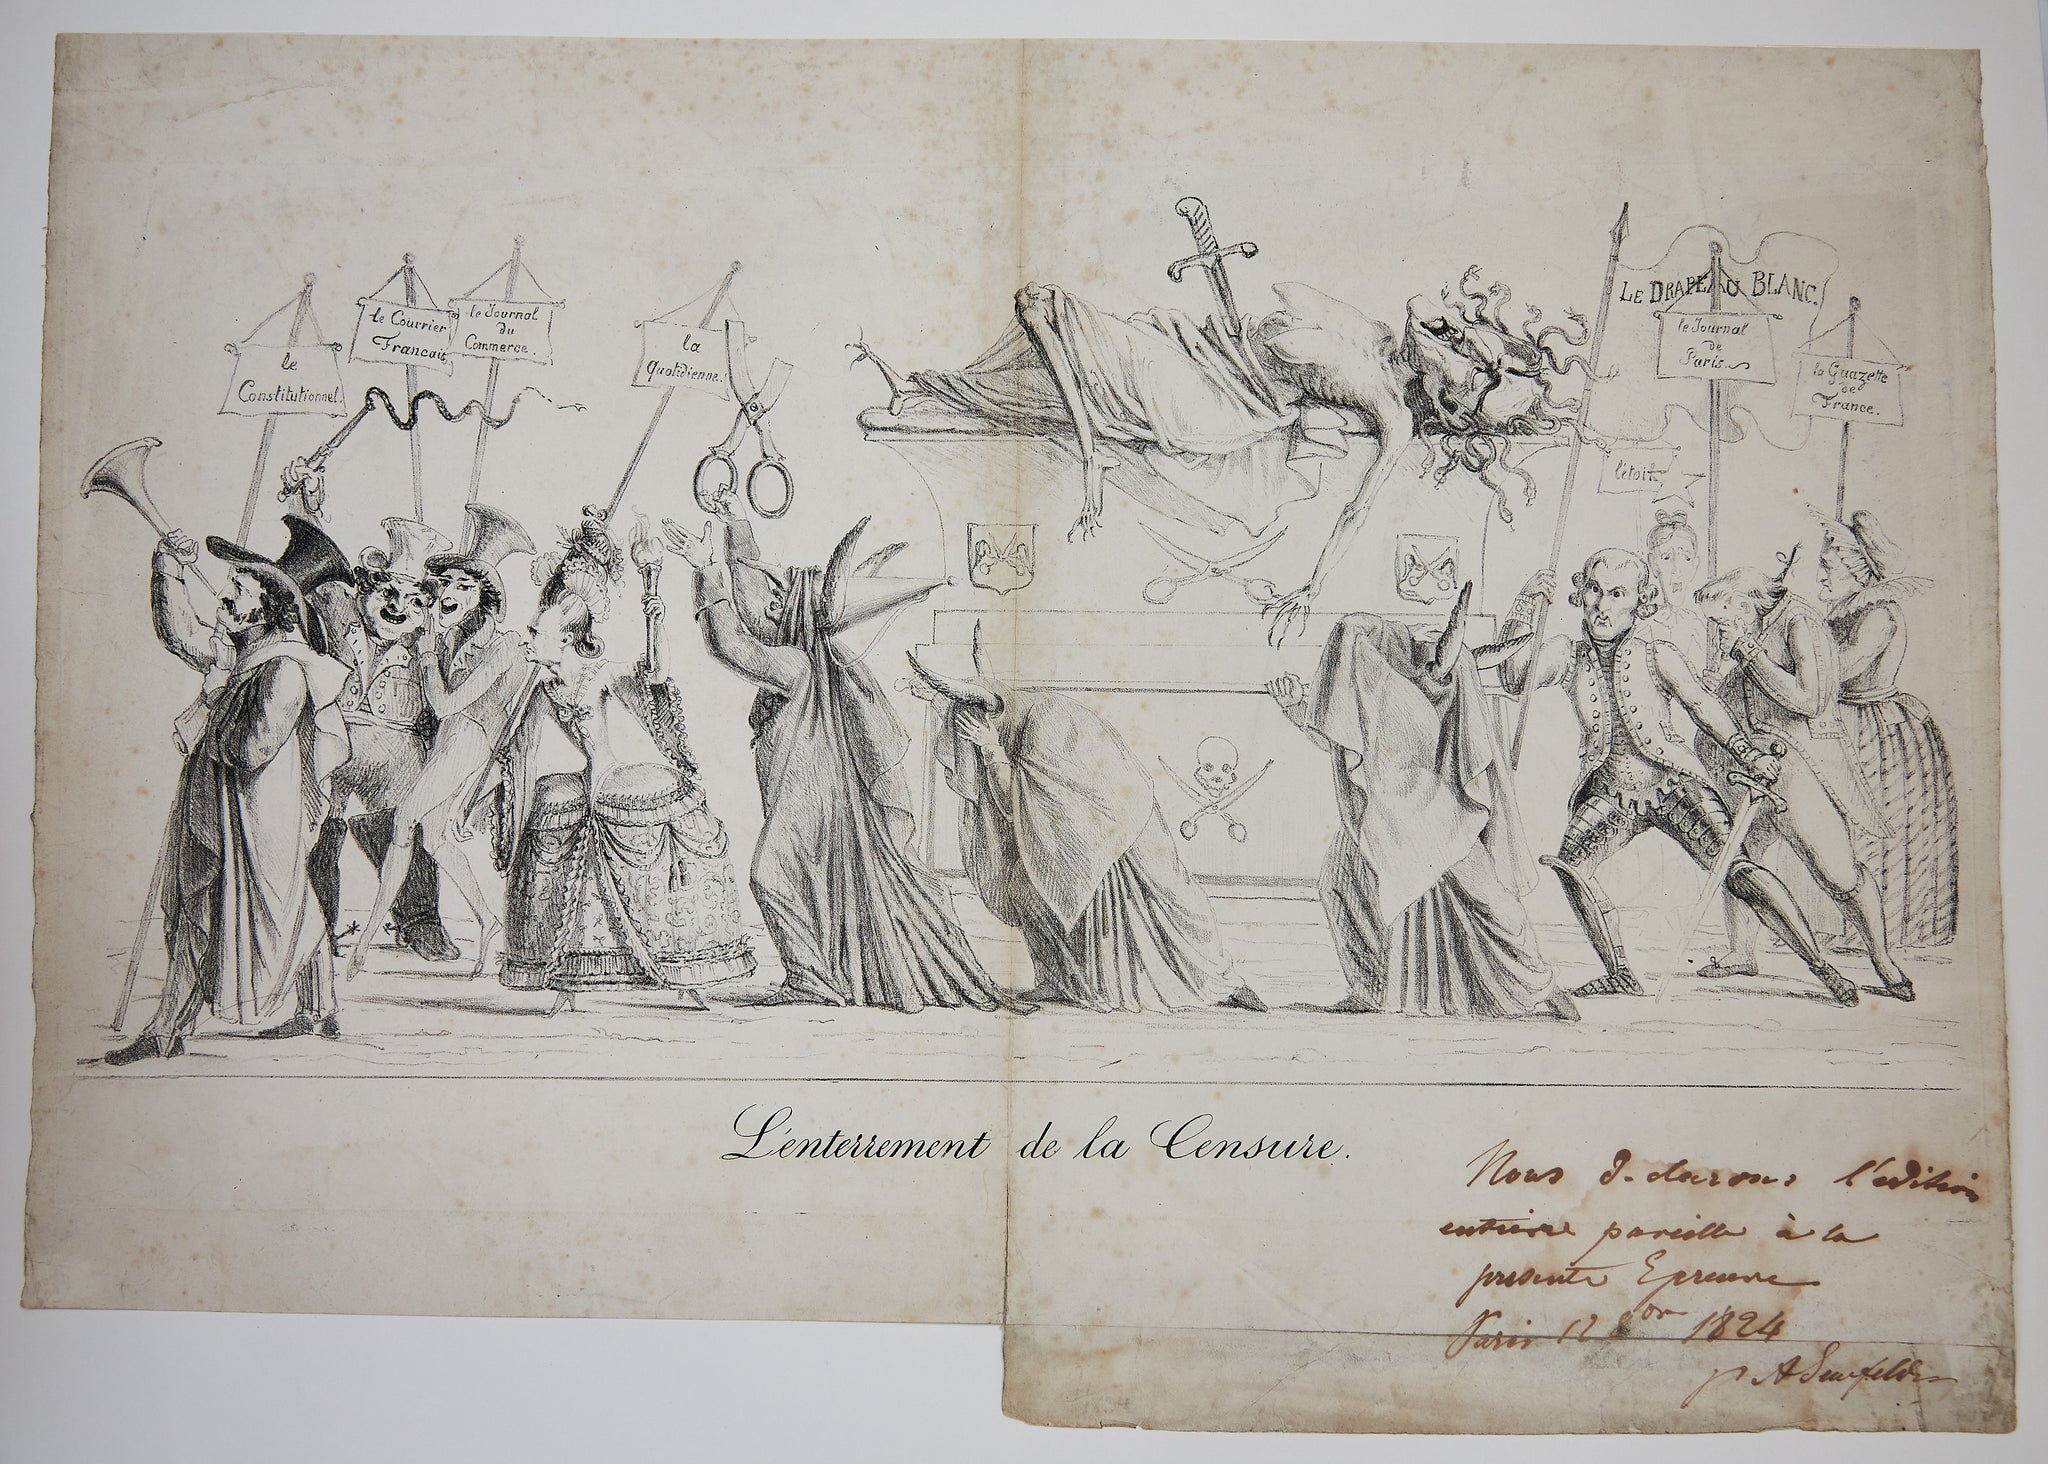 le
Constitutionnel.
le Courrier
Francais
le Journal
du
Commerce.
la
Quotidienne.
LE DRAPEAU BLANC.
le Journal
de
Paris.
la Guazette
de
France.
l'étoile
L'enterrement de la Censure.
Nous déclarons l'édition
entiere pareille à la
presente Epreuve
Paris 12 8bre 1824